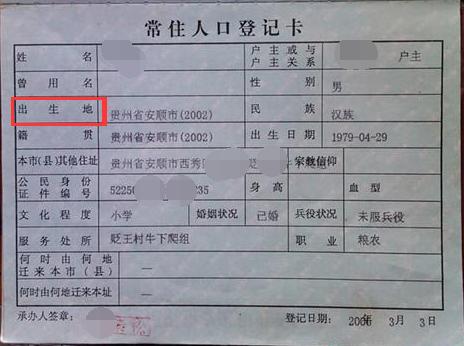 常住人口登记卡
姓名 户主或与户主关系 户主
曾用名 性别 男
出生地 贵州省安顺市(2002) 民族 汉族
籍贯 贵州省安顺市(2002) 出生日期 1979-04-29
本市(县)其他住址 贵州省安顺市西秀 宗教信仰
公民身份证件编号 52250 235 身高 血型
文化程度 小学 婚姻状况 已婚 兵役状况 未服兵役
服务处所 贬王村牛下爬组 职业 粮农
何时由何地迁来本市(县) —
何时由何地迁来本址 —
承办人签章: 登记日期: 2006年3月3日